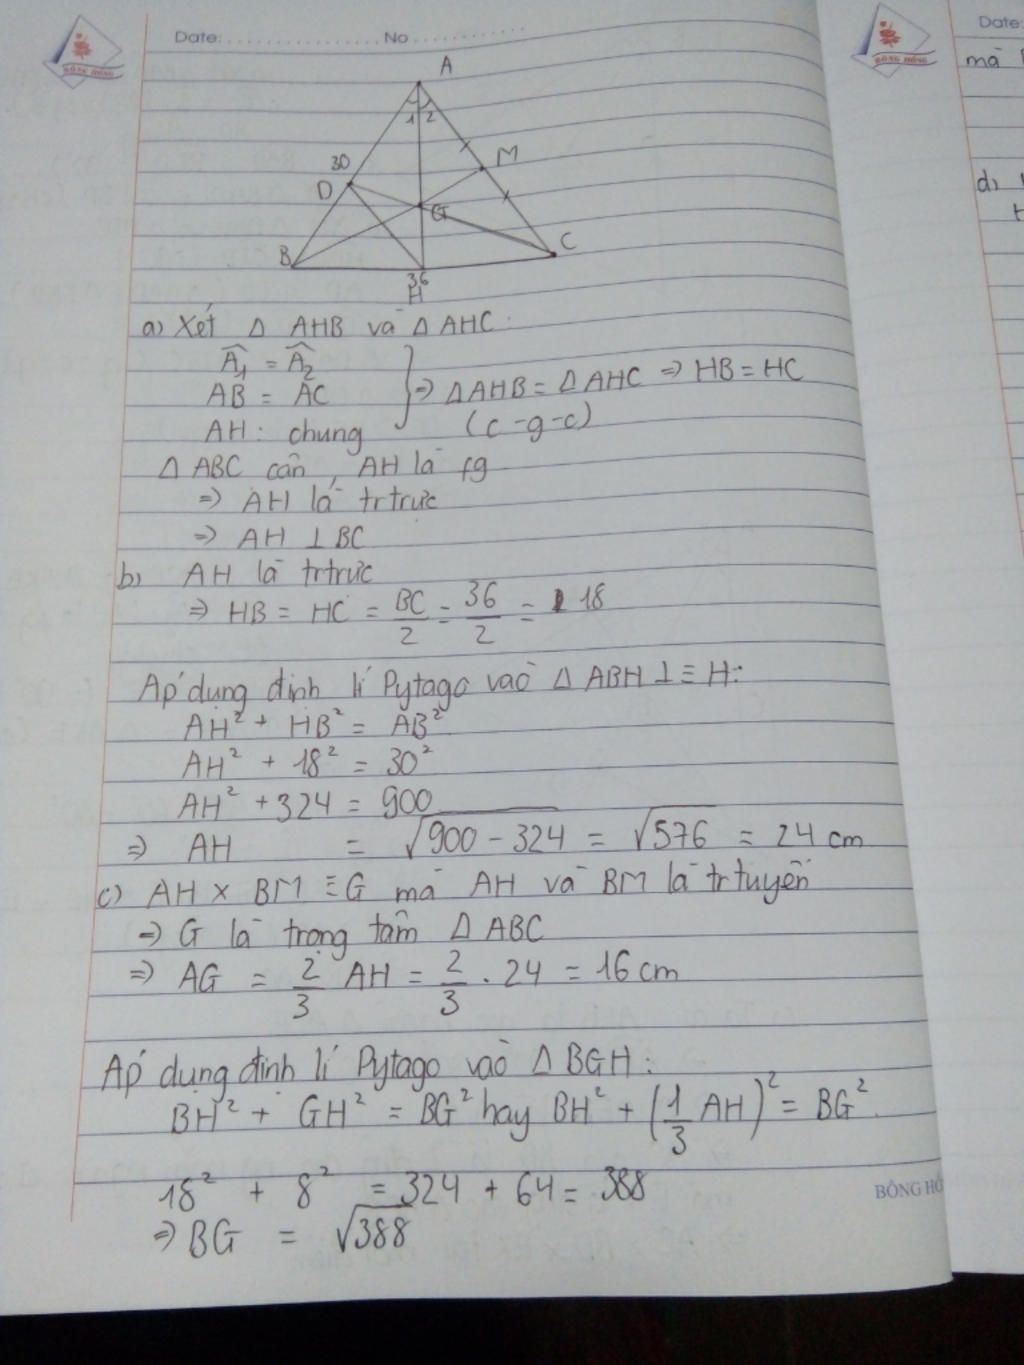 BÔNG HỒNG
Date: No
BÔNG HỒNG
Date:
A
1 2
30
D
M
G
B
C
36
H
mà
d)
a) Xét Δ AHB và Δ AHC:
Â1 = Â2
AB = AC
AH: chung
} ⇒ ΔAHB = ΔAHC ⇒ HB = HC
(c-g-c)
Δ ABC cân, AH là fg
⇒ AH là trtrực
⇒ AH ⊥ BC
b) AH là trtrực
⇒ HB = HC = BC/2 = 36/2 = 18
Áp dụng định lí Pytago vào Δ ABH ⊥ ≡ H:
AH² + HB² = AB²
AH² + 18² = 30²
AH² + 324 = 900
⇒ AH = √900 - 324 = √576 = 24 cm
c) AH x BM ≡ G mà AH và BM là trtuyến
⇒ G là trọng tâm Δ ABC
⇒ AG = 2/3 AH = 2/3 . 24 = 16 cm
Áp dụng định lí Pytago vào Δ BGH:
BH² + GH² = BG² hay BH² + (1/3 AH)² = BG²
18² + 8² = 324 + 64 = 388
⇒ BG = √388
BÔNG HỒ